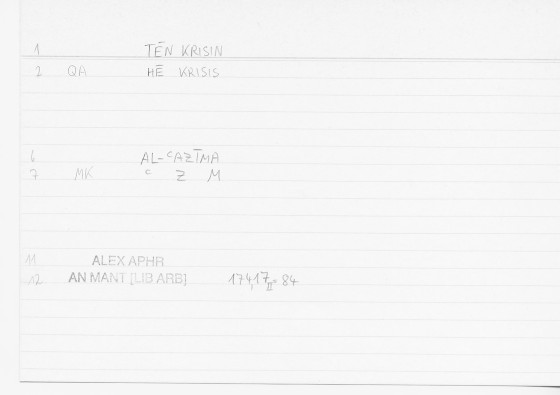 1 TĒN KRISIN
2 QA HĒ KRISIS
6 AL-ᶜAZĪMA
7 MK ᶜ Z M
11 ALEX APHR
12 AN MANT [LIB ARB] 174,17 = 84